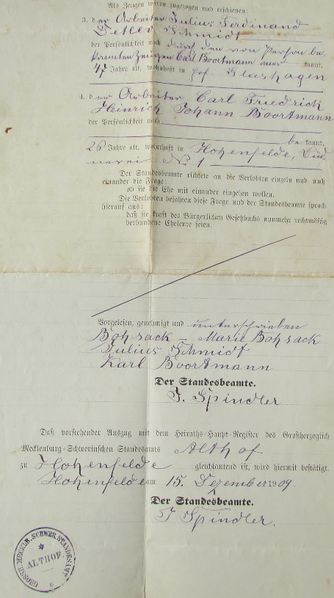 Als Zeugen waren zugezogen und erschienen:
3. der Arbeiter Julius Ferdinand
Detlef Schmidt
der Persönlichkeit nach durch den von Person be-
kannten Zeugen Carl Boortmann aner kannt,
47 Jahre alt, wohnhaft in Hof Glashagen
4. der Arbeiter Carl Friedrich
Heinrich Johann Boortmann
der Persönlichkeit nach
be kannt,
26 Jahre alt, wohnhaft in Hohenfelde, Büd
nerei No 1
Der Standesbeamte richtete an die Verlobten einzeln und nach
einander die Frage:
ob sie die Ehe mit einander eingehen wollen.
Die Verlobten bejahten diese Frage und der Standesbeamte sprach
hierauf aus:
daß sie kraft des Bürgerlichen Gesetzbuchs nunmehr rechtmäßig
verbundene Eheleute seien.
Vorgelesen, genehmigt und unterschrieben
Bohsack – Marie Bohsack
Julius Schmidt
Karl Boortmann
Der Standesbeamte.
J. Spindler
Daß vorstehender Auszug mit dem Heiraths-Haupt-Register des Großherzoglich
Mecklenburg-Schwerinschen Standesamts Althof
zu Hohenfelde gleichlautend ist, wird hiermit bestätigt.
Hohenfelde am 15. Dezember 1909
Der Standesbeamte.
J Spindler.
GROSSH. MECKLB. SCHWER. STANDESAMT
ALTHOF.